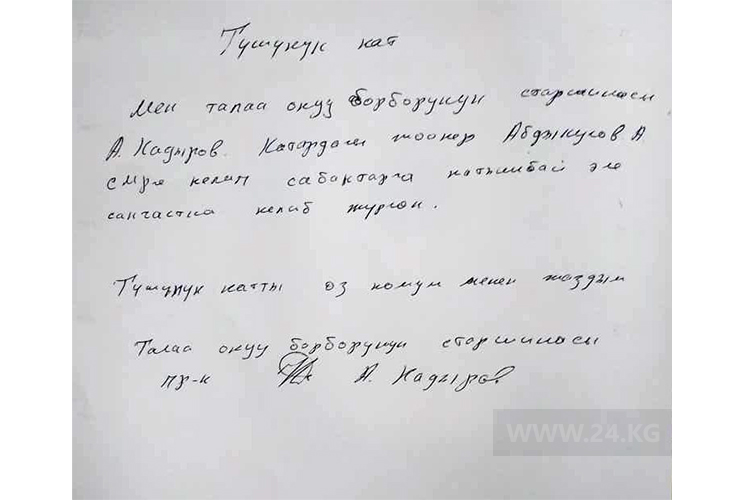 Тушунук кат
Мен талаа окуу борборунун старшинасы
А. Кадыров. Катардагы жоокер Абдыкулов А
келип сабактарга катышбай эле
санчастка келиб жургон.
Тушунук катты оз колум менен жаздым
Талаа окуу борборунун старшинасы
пр-к А. Кадыров
WWW.24.KG